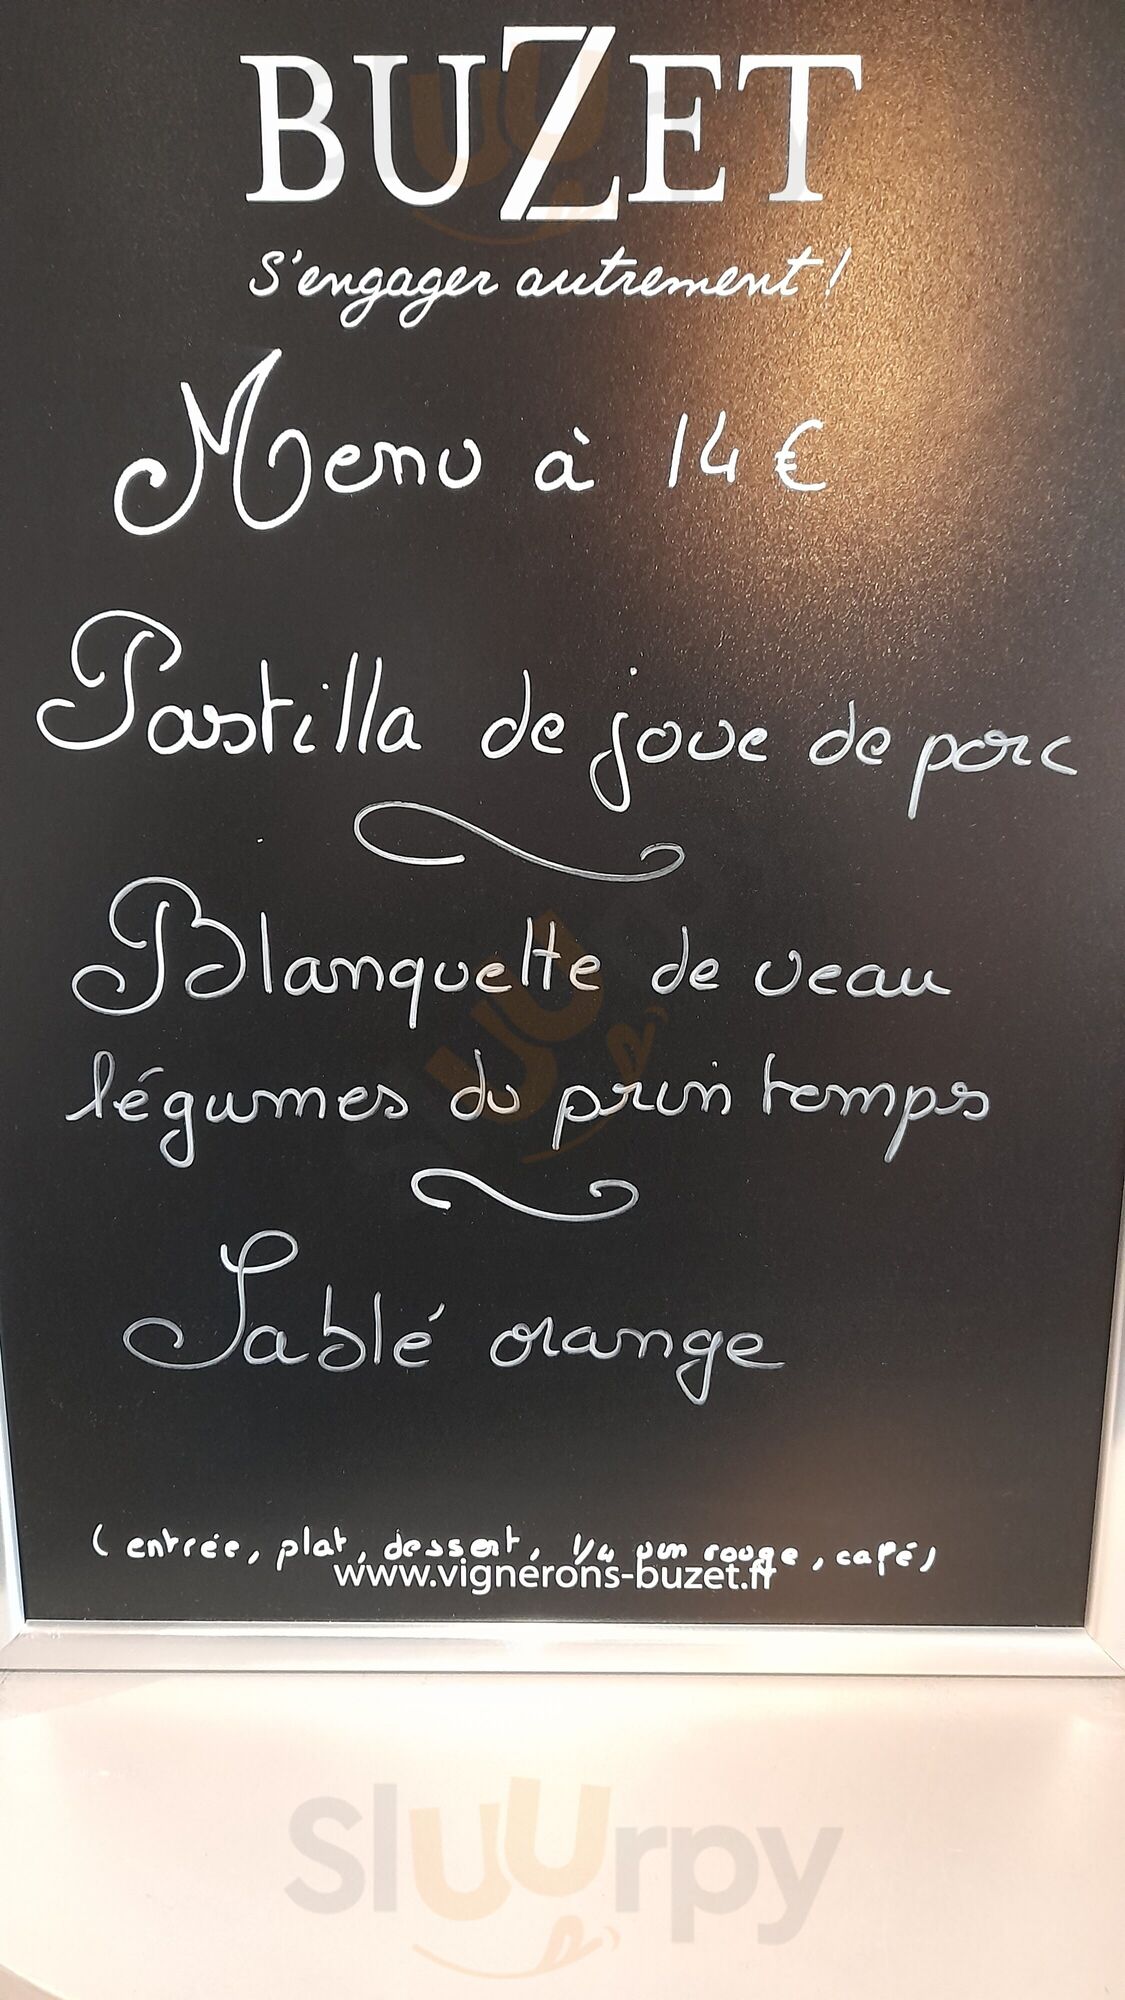 BUZET
S'engager autrement !
Menu à 14 €
Pastilla de joue de porc
Blanquette de veau
légumes du printemps
Sablé orange
( entrée, plat, dessert, 1/4 vin rouge, café)
www.vignerons-buzet.fr
Sluurpy